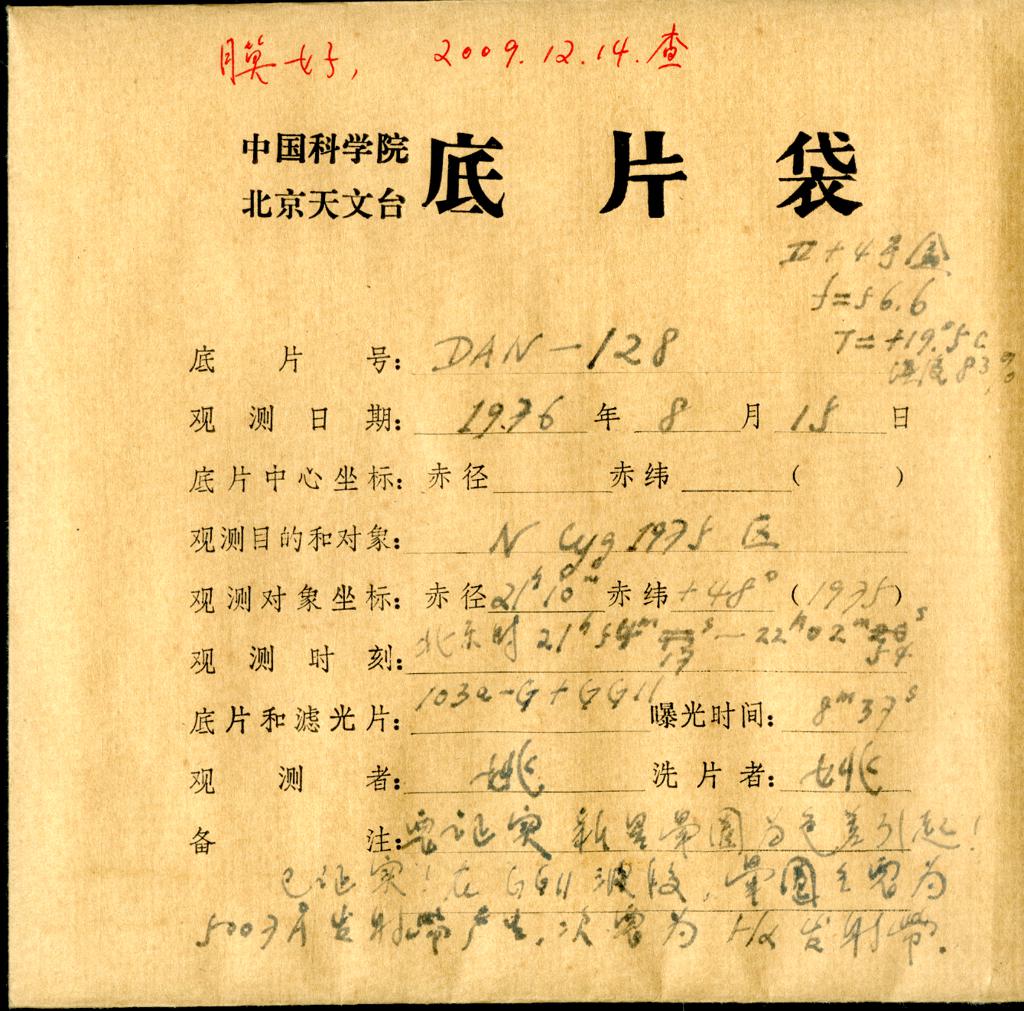 膜好, 2009.12.14.查
中国科学院
北京天文台
底片袋
II+4号
f=56.6
T=+19.°5C
湿度83%
底片号: DAN-128
观测日期: 1976年8月15日
底片中心坐标: 赤径 赤纬 ( )
观测目的和对象: N Cyg 1975 区
观测对象坐标: 赤径21h10m赤纬+48°(1975)
观测时刻: 北京时 21h54m17s—22h02m54s
底片和滤光片: 103a-G+GG11 曝光时间: 8m37s
观测者: 姚 洗片者: 姚
备注: 要证实新星晕圈为色差引起!
已证实!在GG11波段,晕圈主要为
5007Å发射带产生,次要为Hα发射带.